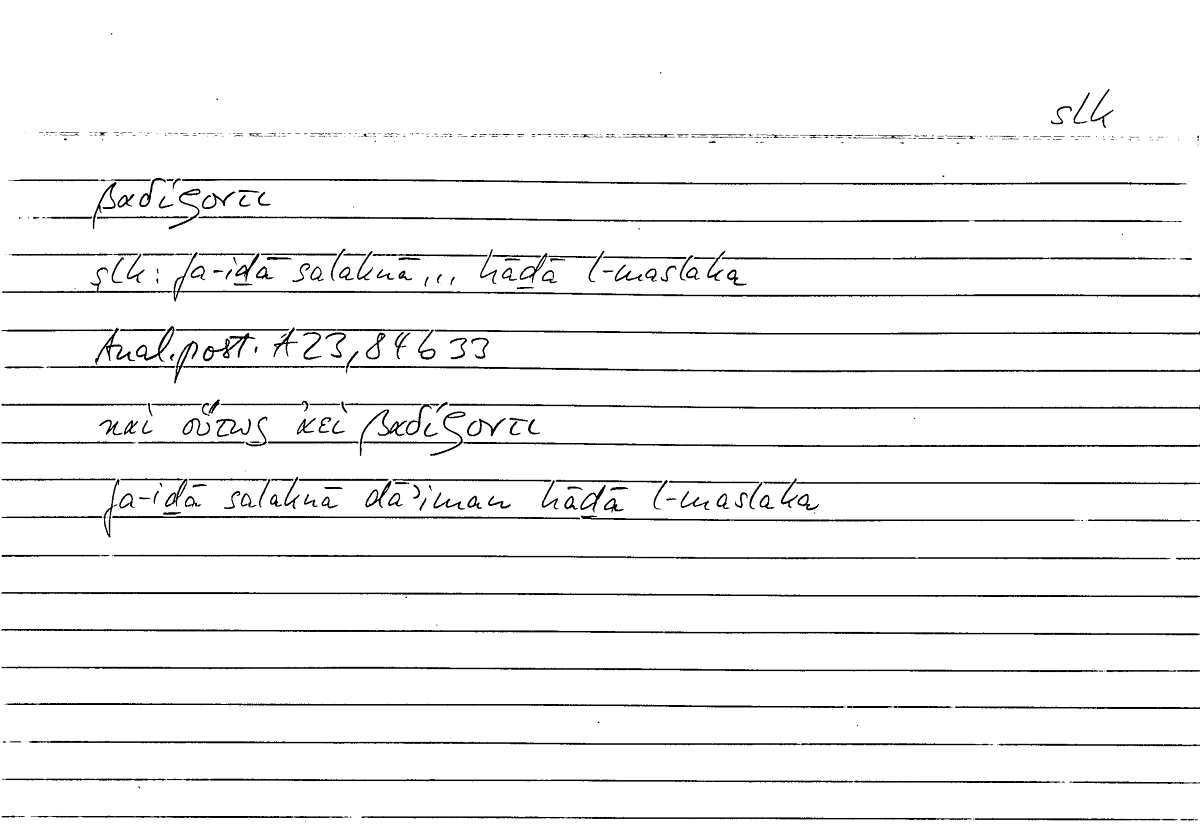 slk
βαδίζοντι
slk: fa-iḏā salaknā ... hāḏā l-maslaka
Anal.post. A 23, 84 b 33
καὶ οὕτως ἀεὶ βαδίζοντι
fa-iḏā salaknā dāʾiman hāḏā l-maslaka